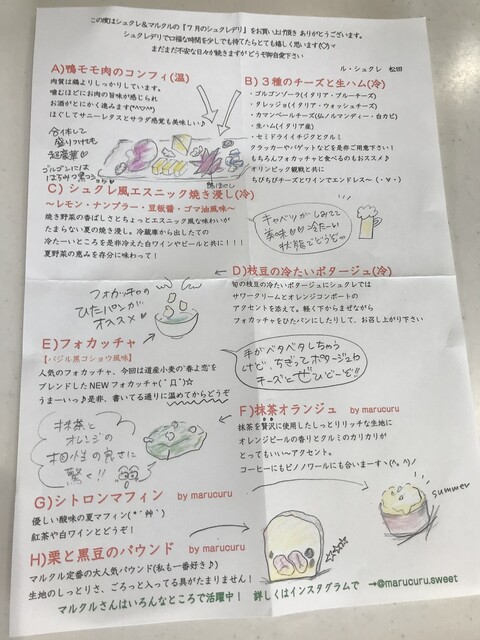 この度はシュクレ&マルクルの『7月のシュクレデリ』をお買い上げ頂き ありがとうございます。
シュクレデリで口福な時間を少しでも持てたらとても嬉しく思います(♡)ヾ
まだまだ不安な日々が続きますが どうぞ御自愛下さい
ル・シュクレ 松田
A)鴨モモ肉のコンフィ(温)
肉質は鶏よりしっかりしています。
噛むほどにお肉の旨味が感じられ
お酒がとにかく進みます(*^▽^*)
ほぐしてサニーレタスとサラダ感覚も美味しい♪
合体して
盛りつけも
超豪華♡
ゴルゴンには
はちみつ黒コショウも♡
鴨ほぐし
B)3種のチーズと生ハム(冷)
・ゴルゴンゾーラ(イタリア・ブルーチーズ)
・タレッジョ(イタリア・ウォッシュチーズ)
・カマンベールチーズ(仏ノルマンディー・白カビ)
・生ハム(イタリア産)
・セミドライイチジクとクルミ
クラッカーやバゲットなどを是非ご用意下さい!
もちろんフォカッチャと食べるのもおススメ♪
オリンピック観戦と共に
ちびちびチーズとワインでエンドレス~(・∀・)
C) シュクレ風エスニック焼き浸し(冷)
~レモン・ナンプラー・豆板醤・ゴマ油風味~
焼き野菜の香ばしさとちょっとエスニック風な味わいが
たまらない夏の焼き浸し。冷蔵庫から出したての
冷たーいところを是非冷えた白ワインやビールと共に!!!
夏野菜の恵みを存分に味わって!
キャベツがしみてて
美味♡♡冷たい
状態でどうぞ~
D)枝豆の冷たいポタージュ(冷)
旬の枝豆の冷たいポタージュにシュクレでは
サワークリームとオレンジコンポートの
アクセントを添えて。軽く下からまぜながら
フォカッチャをひたパンにしたりして、お召し上がり下さい
フォカッチャの
ひたパンが
オススメ♡
E)フォカッチャ
【バジル黒コショウ風味】
人気のフォカッチャ、今回は道産小麦の'春よ恋'を
ブレンドしたNEWフォカッチャ(´Д`)☆
うまーいっ♪是非、書いてる通りに温めてからどうぞ
手がベタベタしちゃう
けど、ちぎってポタージュや
チーズとぜひど~ぞ!!
F)抹茶オランジュ by marucuru
抹茶を贅沢に使用したしっとりリッチな生地に
オレンジピールの香りとクルミのカリカリが
とってもいい~アクセント。
コーヒーにもピノノワールにも合いまーすヽ(^。^)ノ
抹茶と
オレンジの
相性の良さに
驚く!!
G)シトロンマフィン by marucuru
優しい酸味の夏マフィン(*´艸`)
紅茶や白ワインとどうぞ!
summer
H)栗と黒豆のパウンド by marucuru
マルクル定番の大人気パウンド(私も一番好き♪)
生地のしっとりさ、ごろっと入ってる具がたまりません!
マルクルさんはいろんなところで活躍中! 詳しくはインスタグラムで →@marucuru.sweet